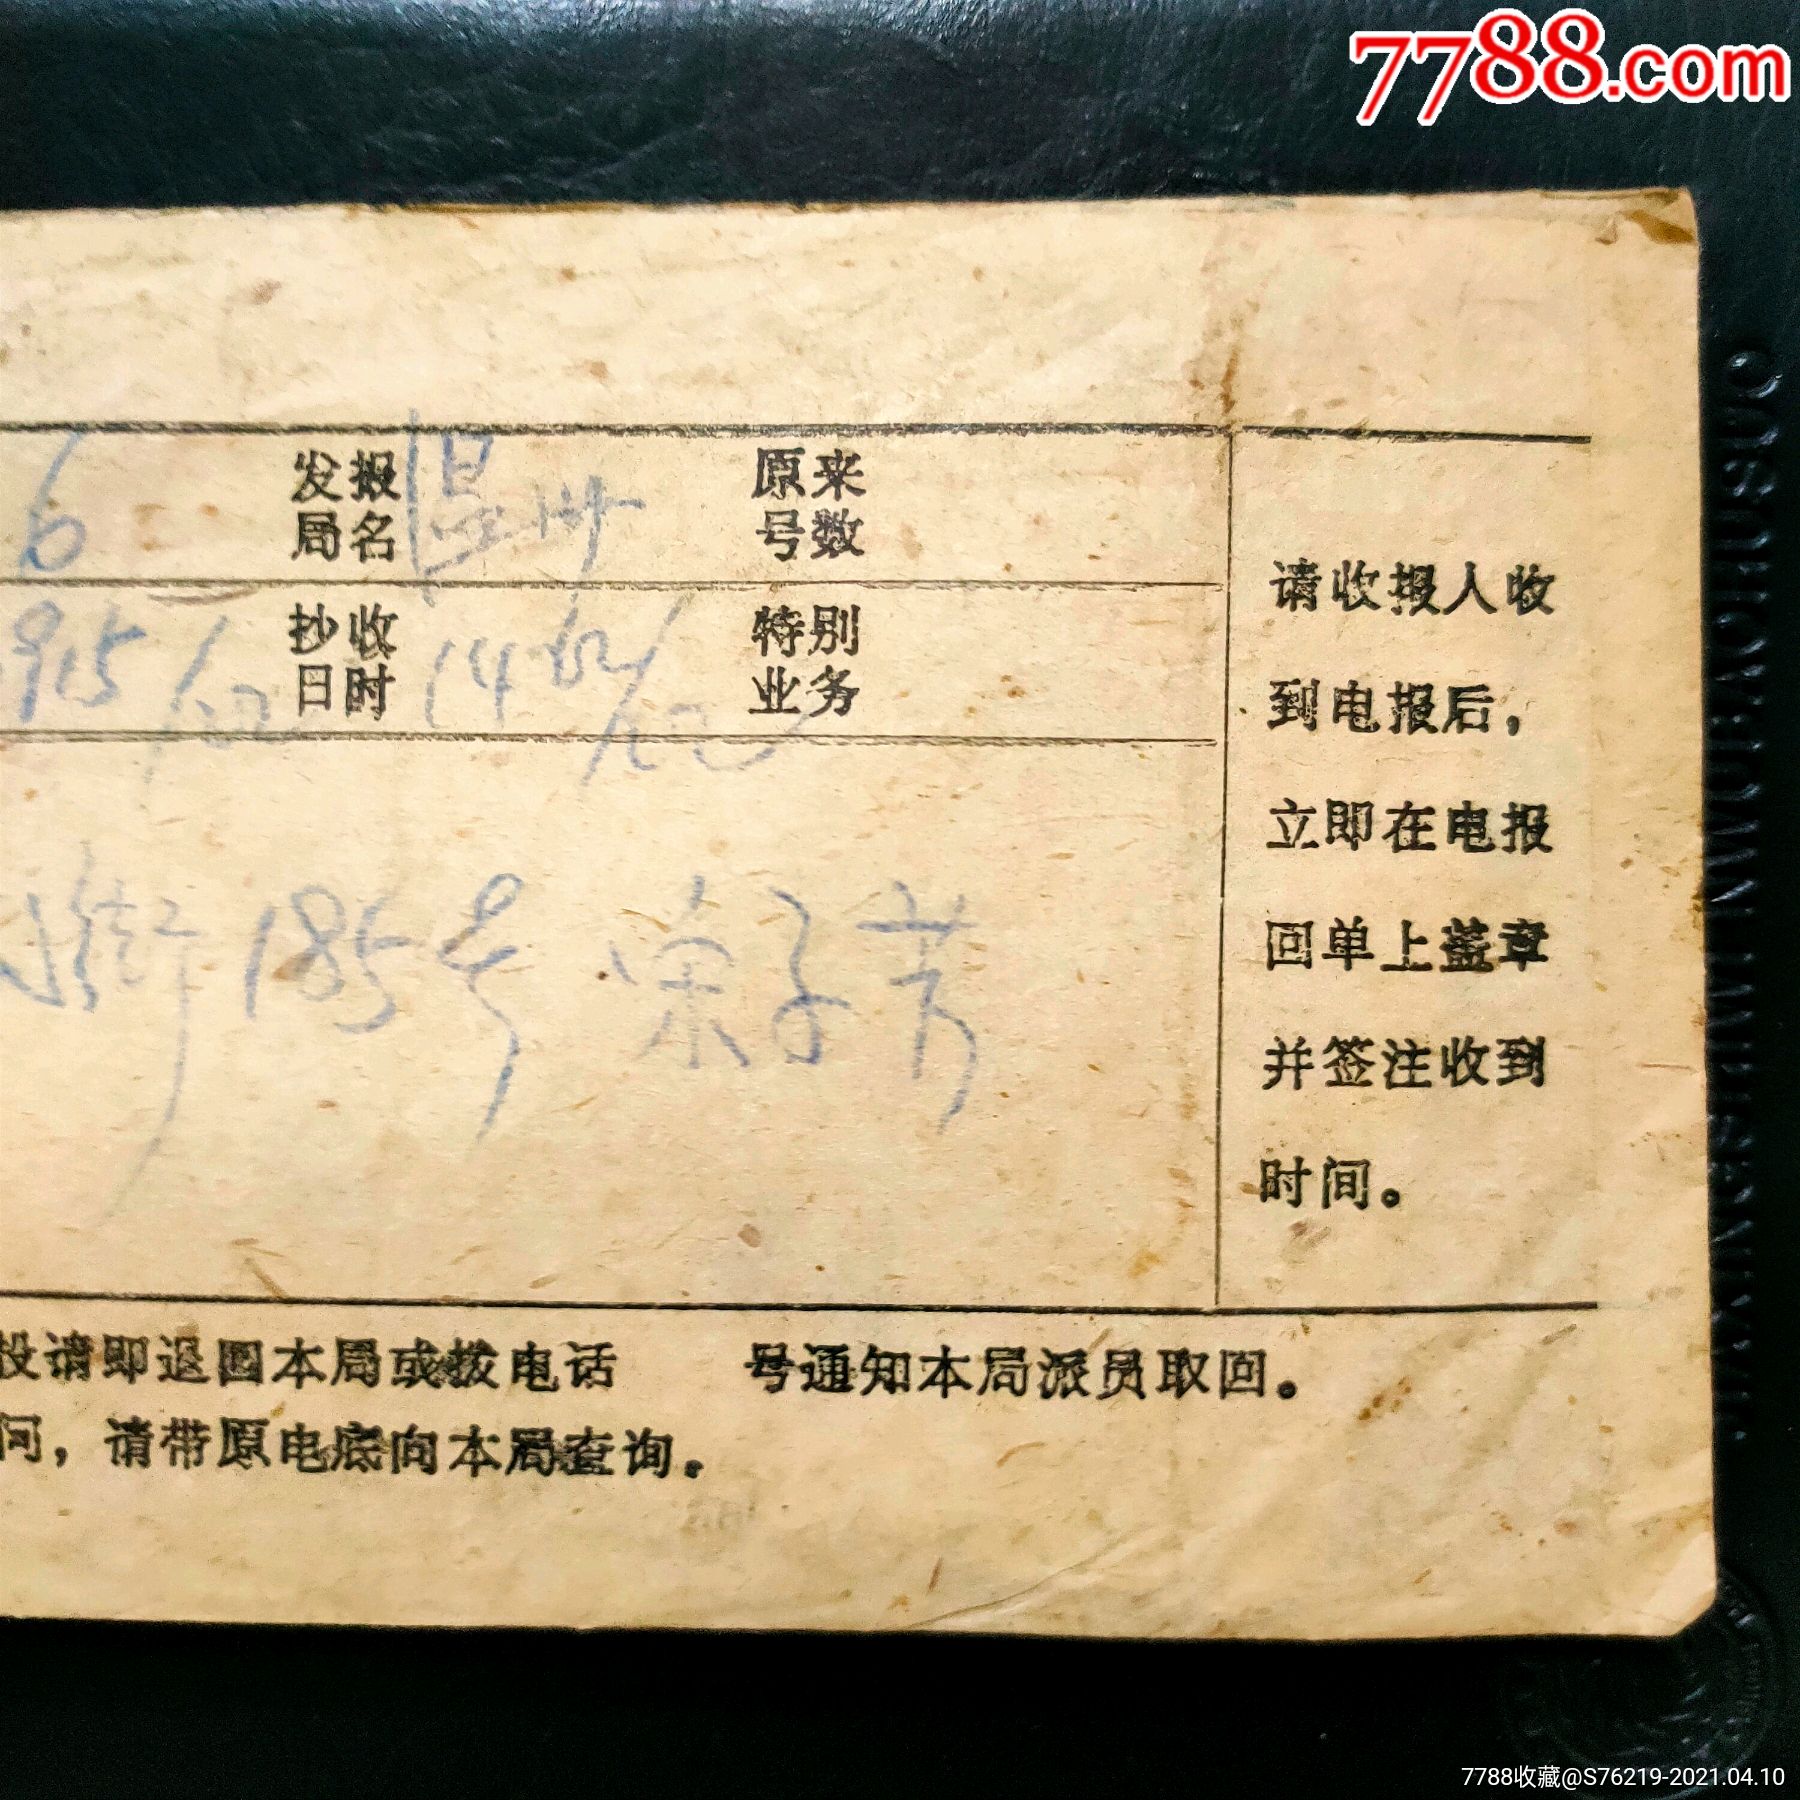 7788.com
6 发报局名 温州 原来号数
915 抄收日时 14 特别业务
街185号 宋子芳
请收报人收
到电报后，
立即在电报
回单上盖章
并签注收到
时间。
投请即退回本局或拨电话 号通知本局派员取回。
问，请带原电底向本局查询。
7788收藏@S76219-2021.04.10